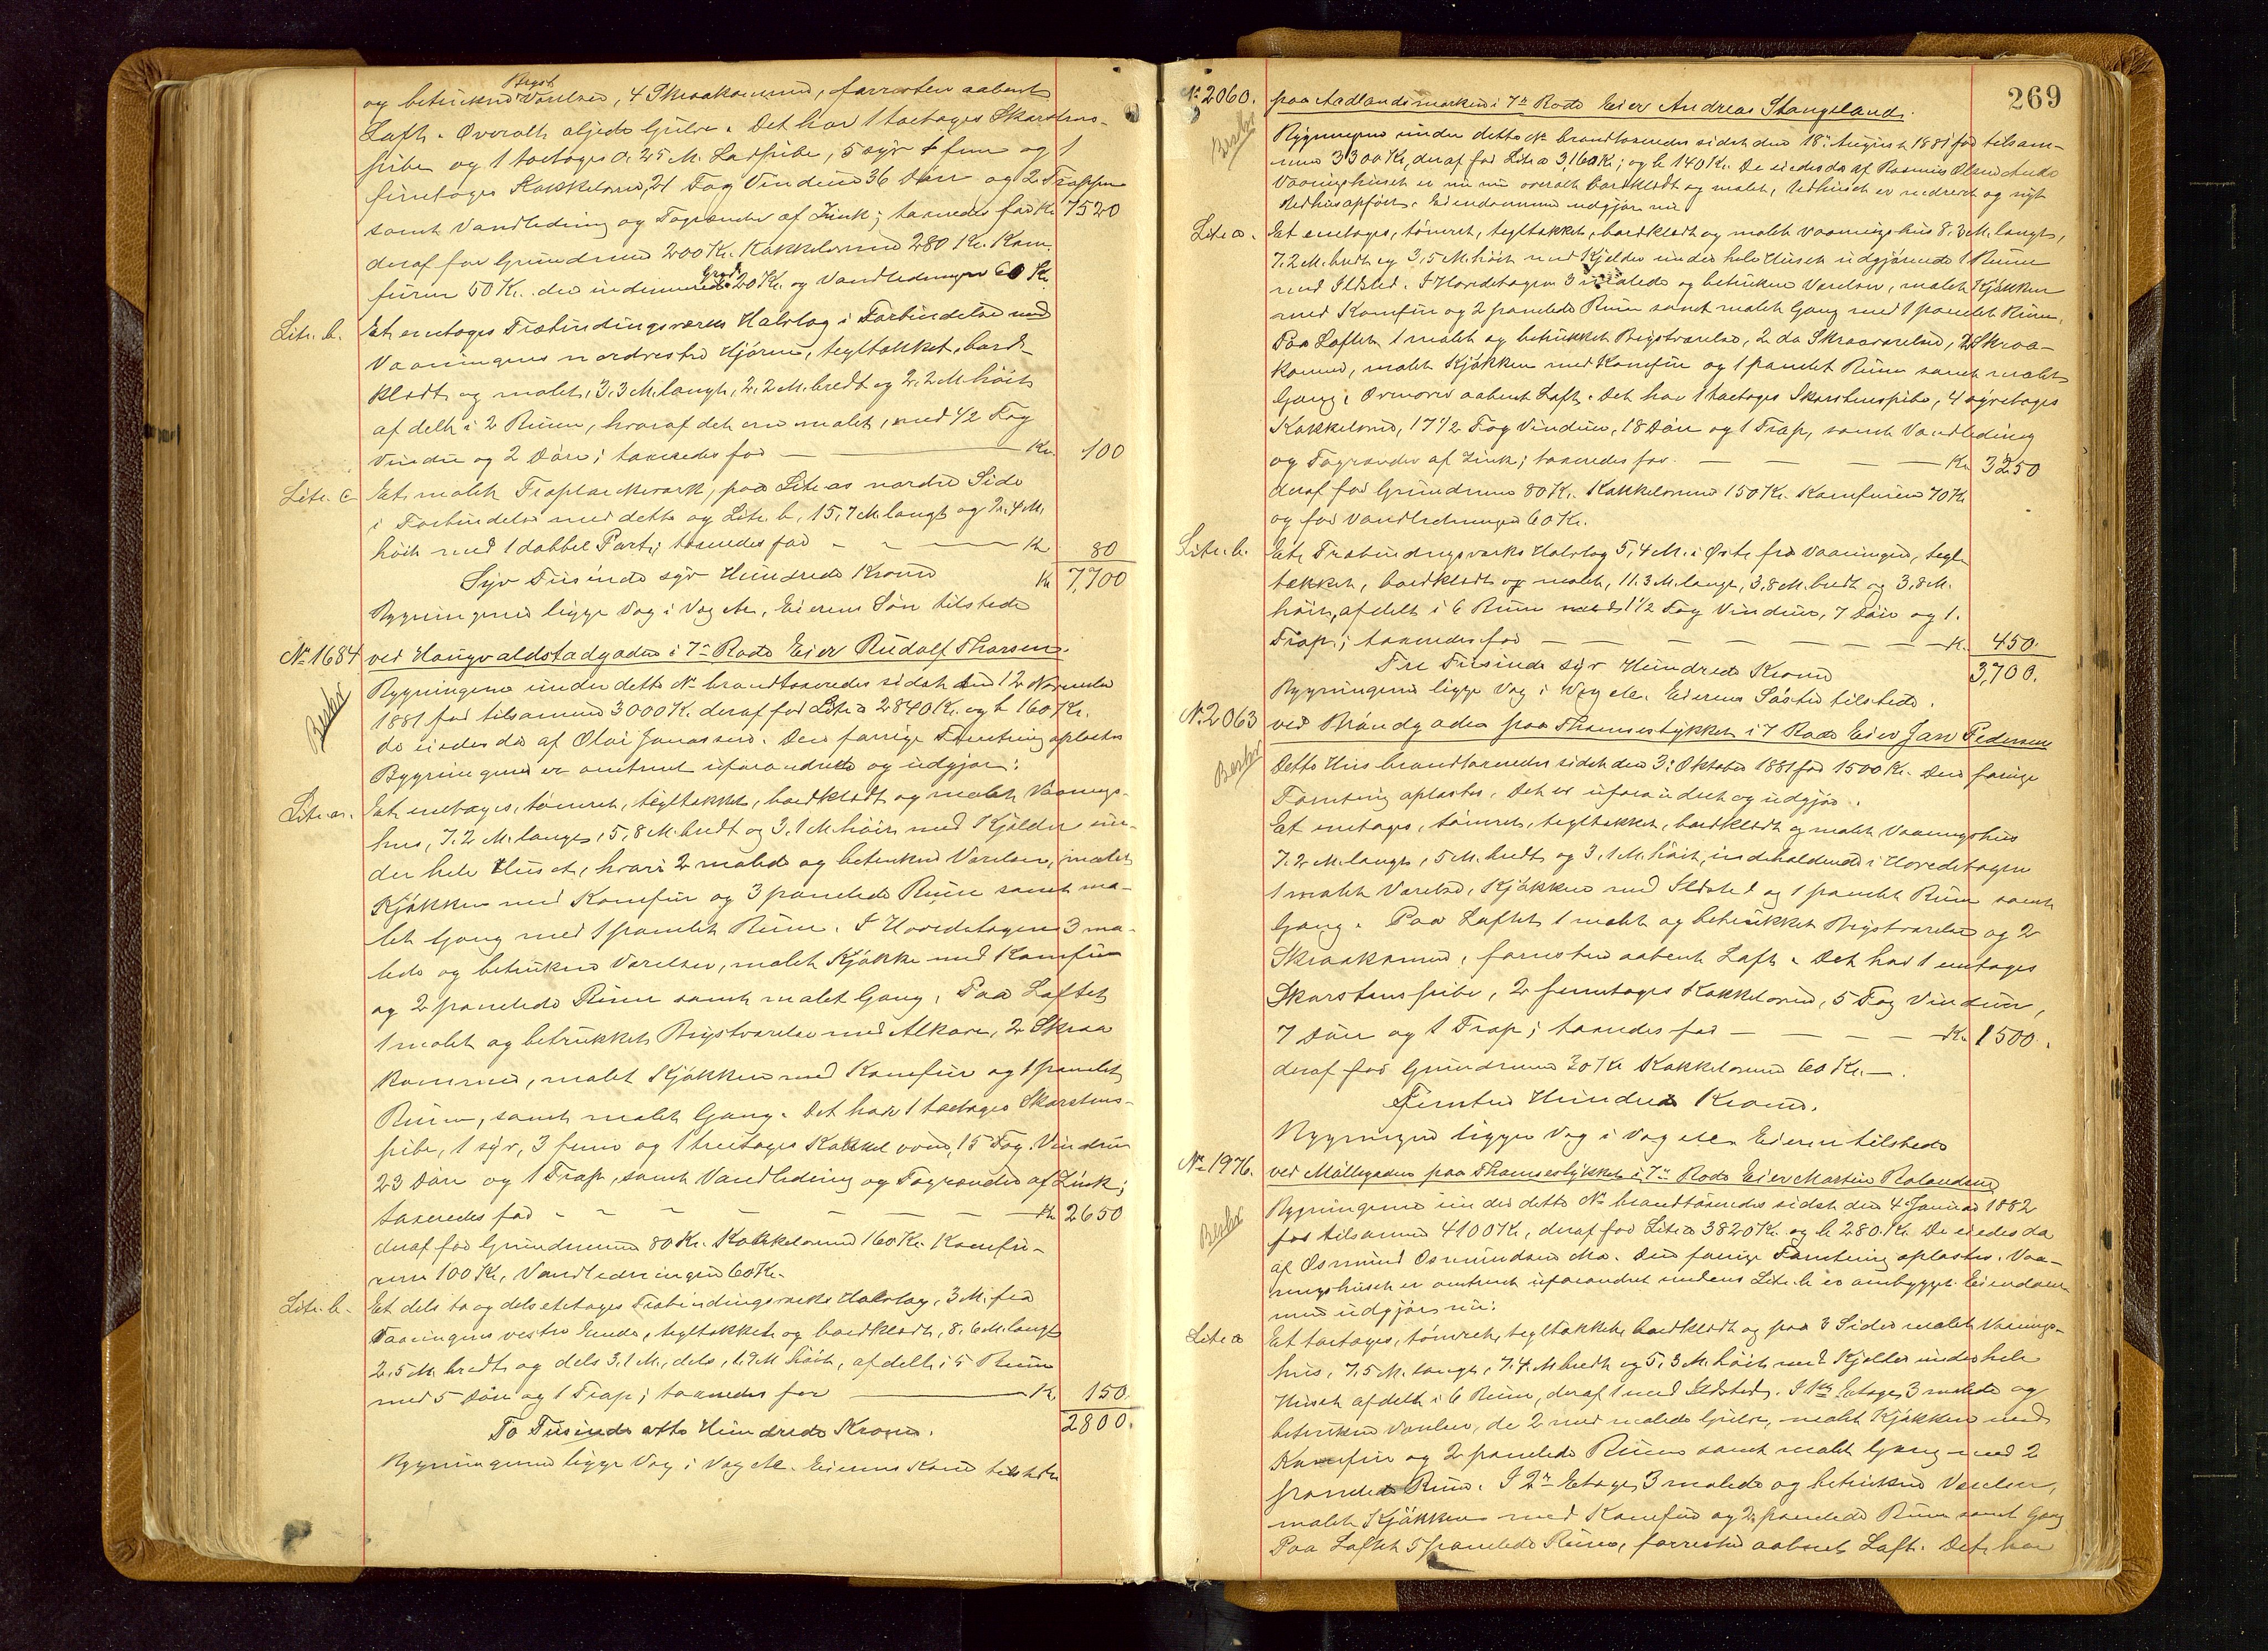 Bryst
og betrukne Værelser, 4 Skraakammere, forresten aabent
Loft. Overalt oljede Gulve. Det har 1 toetages Skorstens-
pibe og 1 toetages 0.25 M. Ladpibe, 5 syv fem og 1
firetages Kakkelovne, 21 Fag Vinduer 36 Døre og 2 Trapper
samt Vandledning og Tagrender af Zink; taxeredes for Kr. 7520
deraf for Grundmuren 200 Kr. Kakkelovnene 280 Kr. Kom-
furene 50 Kr. den indemurede Gryde 20 Kr. og Vandledningen 60 Kr.
Litr. b. Et enetages Træbindingsværks Halvtag i Forbindelse med
Vaaningens nordvestre Hjørne, tegltækket, bord-
klædt og malet, 3,3 M. langt, 2,2 M. bredt og 2,2 M. høit
afdelt i 2 Rum, hvoraf det ene malet, med 1/2 Fag
Vindu og 2 Døre; taxeredes for — Kr. 100
Litr. c Et malet Træplankeværk, paa Litr. as nordre Side
i Forbindelse med dette og Litr. b, 15,7 M. langt og 2,4 M.
høit med 1 dobbel Port; taxeredes for - - — Kr. 80
Syv Tusinde syv Hundrede Kroner Kr. 7,700
Bygningerne ligge Væg i Væg etc. Eierens Søn tilstede
No 1684 ved Haugvaldstadgaden i 7de Rode Eier Rudolf Thorsen.
Beskr
Bygningerne under dette No brandtaxeredes sidst den 12 November
1881 for tilsammen 3000 Kr. deraf for Litr a 2840 Kr. og b 160 Kr.
de eiedes da af Olai Jonassen. Den forrige Forretning oplæstes
Bygningerne er omtrent uforandrede og udgjør:
Litr. a. Et enetages, tømret, tegltækket, bordklædt og malet Vaanings-
hus, 7.2 M. langt, 5,8 M. bredt og 3,1 M. høit med Kjelder un-
der hele Huset, hvori 2 malede og betrukne Værelser, malet
Kjøkken med Komfur og 3 panelede Rum samt ma-
let Gang med 1 panelet Rum. I Hovedetagen 3 ma-
lede og betrukne Værelser, malet Kjøkken med Komfur
og 2 panelede Rum samt malet Gang, Paa Loftet
1 malet og betrukket Brystværelse med Alkove, 2 Skraa
kammere, malet Kjøkken med Komfur og 1 panelet
Rum, samt malet Gang. Det har 1 toetages Skorstens-
pibe, 1 syv, 3 fem og 1 treetages Kakkelovne, 15 Fag Vinduer
23 Døre og 1 Trap, samt Vandledning og Tagrender af Zink;
taxeredes for - - - — — — Kr. 2650
deraf for Grundmuren 80 Kr. Kakkelovnene 160 Kr. Komfu-
rene 100 Kr, Vandledningen 60 Kr.
Litr. b. Et dels to og dels etetages Træbindingsværks Halvtag, 3 M. fra
Vaaningens vestre Ende, tegltækket og bordklædt, 8.6 M. langt
2,5 M. bredt og dels 3,1 M., dels 1,9 M høit, afdelt i 5 Rum
med 5 Døre og 1 Trap; taxeredes for — Kr. 150
To Tusinde otte Hundrede Kroner. 2800.
Bygningerne ligge Væg i Væg etc. Eierens Kone tilstede
269
No 2060. paa Aadlandsmarken i 7de Rode Eier Andreas Stangeland.
Beskr
Bygningerne under dette No brandtaxeredes sidst den 18de August 1881 for tilsam-
men 3300 Kr, deraf for Litr a 3,160 Kr; og b 140 Kr. De eiedes da af Rasmus Olsen Aude
Vaaningshuset er nu overalt bordklædt og malet, Udhuset er nedrevet og nyt
Udhus opført. Eiendommen udgjør nu:
Litr a. Et enetages, tømret, tegltækket, bordklædt og malet Vaaningshus 8,3 M. langt,
7.2 M. bredt og 3,5 M. høit med Kjelder under hele Huset udgjørende 1 Rum
med Ildsted. I Hovedetagen 3 malede og betrukne Værelser, malet Kjøkken
med Komfur og 2 panelede Rum samt malet Gang med 1 panelet Rum.
Paa Loftet 1 malet og betrukket Brystværelse, 2 do Skraaværelser, 2 Skraa-
kammere, malet Kjøkken med Komfur og 1 panelet Rum samt malet
Gang. Ovenover aabent Loft. Det har 1 toetages Skorstenspibe, 4 syvetages
Kakkelovne, 17 1/2 Fag Vinduer, 18 Døre og 1 Trap, samt Vandledning
og Tagrender af Zink; taxeredes for — — — — Kr. 3250
deraf for Grundmuren 80 Kr. Kakkelovnene 150 Kr. Komfurene 70 Kr.
og for Vandledningen 60 Kr.
Litr. b. Et Træbindingsværks Halvtag 5,4 M. i Øst fra Vaaningen, tegl-
tækket, bordklædt og malet, 11.3 M. langt, 3,8 M. bredt og 3,8 M.
høit, afdelt i 6 Rum med 1 1/2 Fag Vinduer, 7 Døre og 1.
Trap; taxeredes for — — — — — — Kr. 450.
Tre Tusinde syv Hundrede Kroner 3,700.
Bygningerne ligge Væg i Væg etc. Eierens Søster tilstede.
No 2063 ved Brøndgaden paa Thomsestykket i 7 Rode Eier Jan Pedersen
Beskr
Dette Hus brandtaxeredes sidst den 3: Oktober 1881 for 1500 Kr. Den forrige
Forretning oplæstes. Det er uforandret og udgjør.
Et enetages, tømret, tegltækket, bordklædt og malet Vaaningshus
7.2 M. langt, 5 M. bredt og 3,1 M. høit, indeholdende i Hovedetagen
1 malet Værelse, Kjøkken med Ildsted og 1 panelet Rum samt
Gang. Paa Loftet 1 malet og betrukket Brystværelse og 2
Skraakammere, forresten aabent Loft. Det har 1 enetages
Skorstenspibe, 2 femetages Kakkelovne, 5 Fag Vinduer,
7 Døre og 1 Trap; taxeredes for — — — — Kr. 1500.
deraf for Grundmuren 30 Kr Kakkelovnene 60 Kr. —.
Femten Hundrede Kroner.
Bygningen ligger Væg i Væg etc. Eieren tilstede
No 1976. ved Møllegaden paa Thomsestykket i 7de Rode Eier Martin Rolandsen
Beskr
Bygningerne under dette No brandtaxeredes sidst den 4 Januar 1882
for tilsammen 4100 Kr, deraf for Litr a 3820 Kr. og b 280 Kr. De eiedes da
af Osmund Osmundsen Mo. Den forrige Forretning oplæstes. Vaa-
ningshuset er omtrent uforandret medens Litr. b er ombygget. Eiendom-
men udgjør nu:
Litr a Et toetages, tømret, tegltækket, bordklædt og paa 3 Sider malet Vaanings-
hus, 7.5 M. langt, 7.4 M. bredt og 5,3 M. høit med Kjelder under hele
Huset afdelt i 6 Rum, deraf 1 med Ildsted. I 1ste Etage 3 malede og
betrukne Værelser, de 2 med malede Gulve, malet Kjøkken med
Komfur og 2 panelede Rum samt malet Gang med 2
panelede Rum. I 2den Etage, 3 malede og betrukne Værelser,
malet Kjøkken med Komfur og 2 panelede Rum samt Gang
Paa Loftet 5 panelede Rum, forresten aabent Loft. Det har